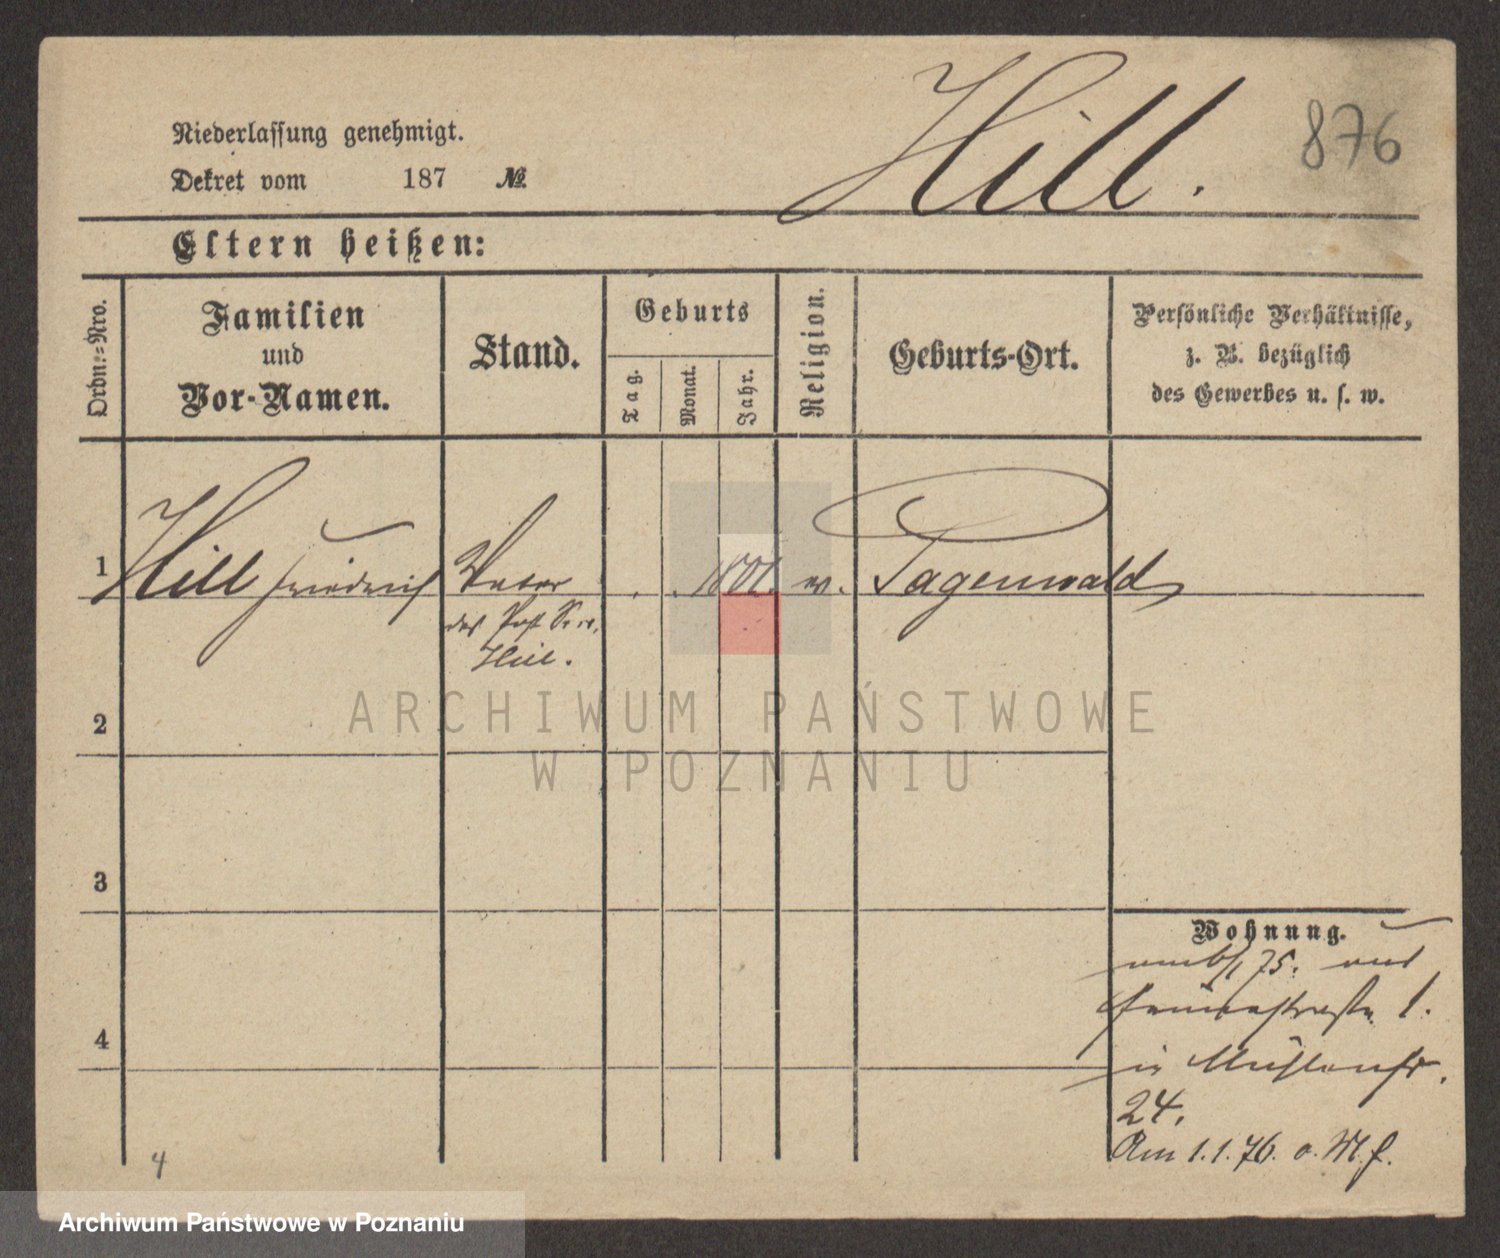 Hill.
876
Niederlassung genehmigt.
Dekret vom 187 №
Eltern heißen:
Ordn.=Nro.
Familien
und
Vor-Namen.
Stand.
Geburts
Tag.
Monat.
Jahr.
Religion.
Geburts-Ort.
Persönliche Verhältnisse,
z. B. bezüglich
des Gewerbes u. s. w.
1 Hill Friedrich Vater . . 1801. Pagenwald
des Post
Hill.
2
ARCHIWUM PAŃSTWOWE
W POZNANIU
3
4
Wohnung.
75. aus
1.
in Mühlenstr.
24.
Am 1.1.76. o. M f.
4
Archiwum Państwowe w Poznaniu